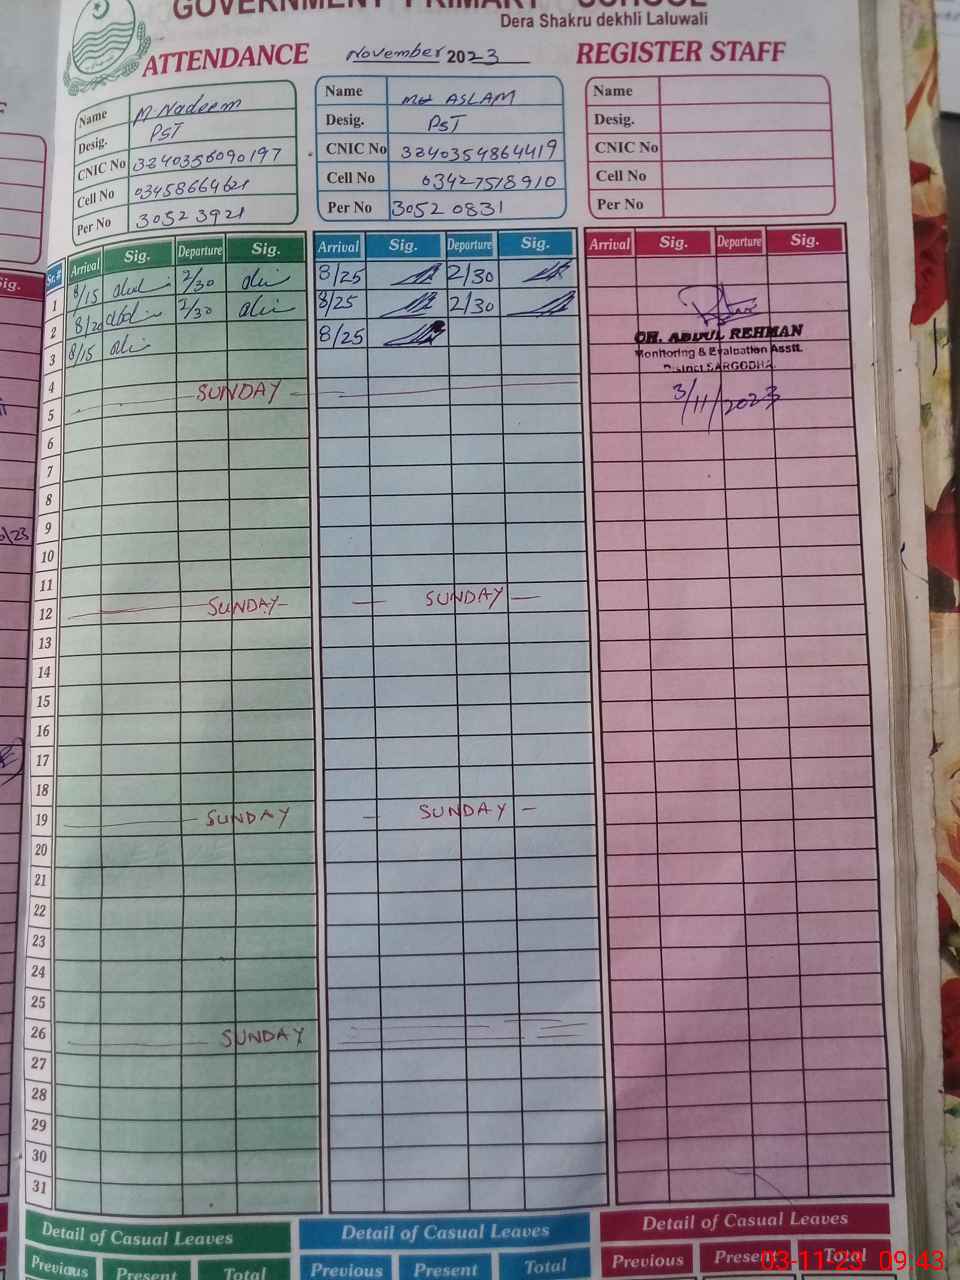 GOVERNMENT PRIMARY SCHOOL
Dera Shakru dekhli Laluwali
ATTENDANCE November 2023 REGISTER STAFF
Name M Nadeem
Desig. PST
CNIC No 3240356090197
Cell No 03458664621
Per No 30523921
Name Md ASLAM
Desig. PST
CNIC No 3240354864419
Cell No 03427518910
Per No 30520831
Name
Desig.
CNIC No
Cell No
Per No
Sr.# Arrival Sig. Departure Sig. Arrival Sig. Departure Sig. Arrival Sig. Departure Sig.
1 8/15 2/30 8/25 2/30
2 8/20 2/30 8/25 2/30
3 8/15 8/25
CH. ABDUL REHMAN
Monitoring & Evaluation Asstt.
District SARGODHA.
3/11/2023
4
5 SUNDAY
6
7
8
9
10
11
12 SUNDAY SUNDAY
13
14
15
16
17
18
19 SUNDAY SUNDAY
20
21
22
23
24
25
26 SUNDAY
27
28
29
30
31
Detail of Casual Leaves Detail of Casual Leaves Detail of Casual Leaves
Previous Present Total Previous Present Total Previous Present Total
03-11-23 09:43